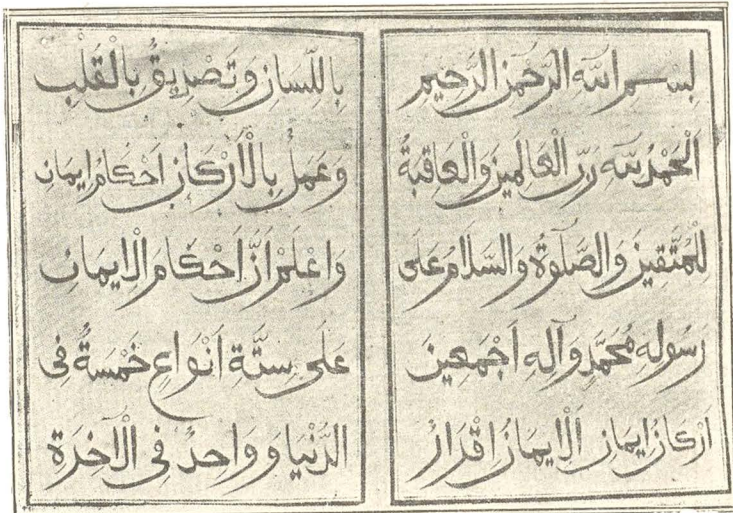 بِسْمِ اللَّهِ الرَّحْمٰنِ الرَّحِيمِ
اَلْحَمْدُ لِلَّهِ رَبِّ الْعَالَمِينَ وَالْعَاقِبَةُ
لِلْمُتَّقِينَ وَالصَّلٰوةُ وَالسَّلَامُ عَلَى
رَسُولِهِ مُحَمَّدٍ وَآلِهِ اَجْمَعِينَ
اَرْكَانُ اِيمَان اَلْاِيمَانُ اِقْرَارٌ
بِاللِّسَانِ وَتَصْدِيقٌ بِالْقَلْبِ
وَعَمَلٌ بِالْاَرْكَانِ اَحْكَامُ اِيمَان
وَاعْلَمْ اَنَّ اَحْكَامَ الْاِيمَانِ
عَلَى سِتَّةِ اَنْوَاعٍ خَمْسَةٌ فِى
الدُّنْيَا وَوَاحِدٌ فِى الْآخِرَةِ